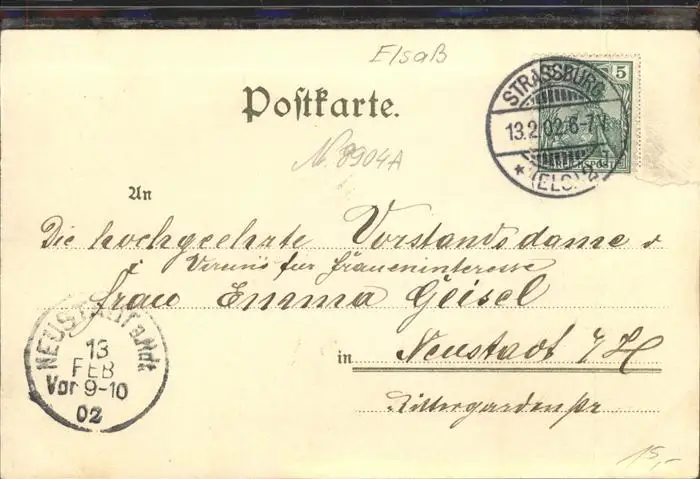 Elsaß
Postkarte.
5
REICHSPOST
STRASSBURG
13.2.02.6-7V.
* (ELS.) 2
No. 8904A
An
Die hochgeehrte Vorstandsdame d
Vereins für Fraueninteresse
Frau Emma Geisel
in Neustadt a/H
Rittergartenstr
NEUSTADT a.Hdt
13
FEB
Vor 9-10
02
15,-